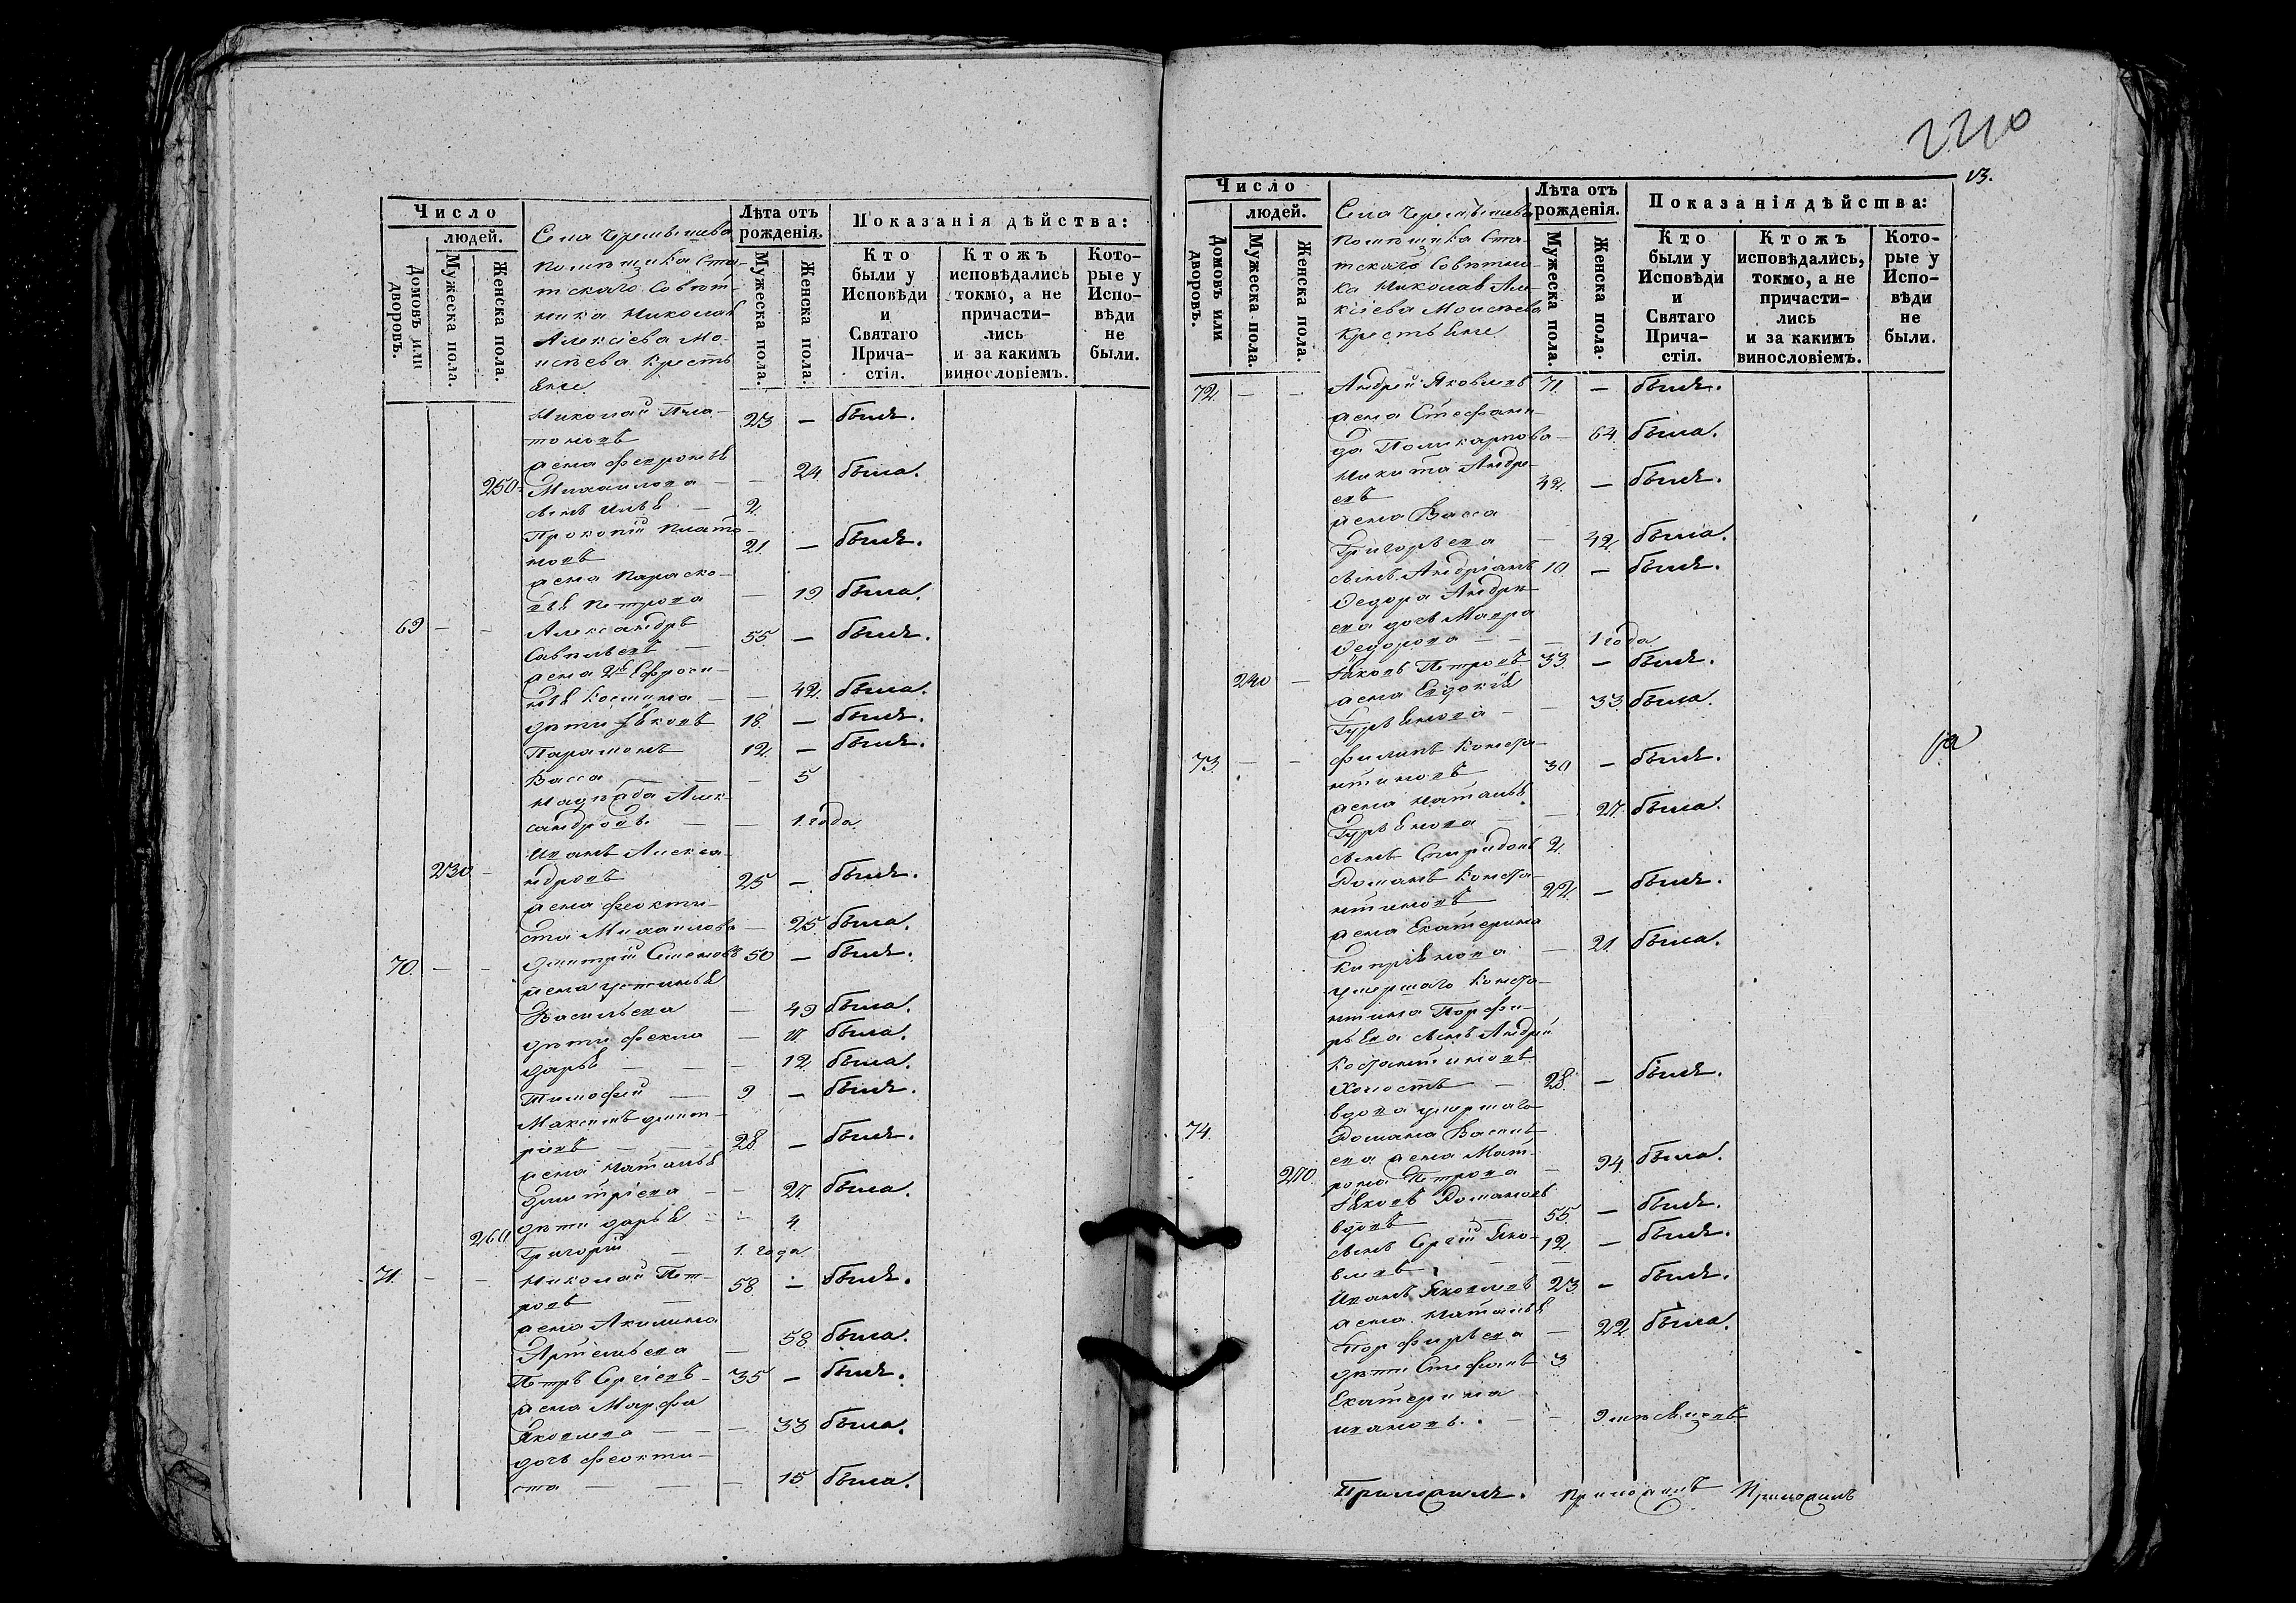 Число
людей.
Домовъ или дворовъ.
Мужеска пола.
Женска пола.
Села Чернышева
Помѣщика Ста-
тскаго Совѣт-
ника Николая
Алексіева Мо-
исѣева Кресть
яне
Лѣта отъ рожденія.
Мужеска пола.
Женска пола.
Показанія дѣйства:
Кто были у Исповѣди и Святаго Прича- стія.
Ктожъ исповѣдались токмо, а не причасти- лись и за какимъ винословіемъ.
Кото- рые у Испо- вѣди не были.
Николай Пла-
тоновъ 23 — былъ.
жена Февронья
250 Михаилова — — 24 была.
сынъ Илья — 2
Прокопій Плато-
новъ 21 — былъ.
жена Параско-
вья Петрова — 19 была.
69 — — Александръ
Савельевъ 55 — былъ.
жена 2я Ефроси-
нья Космина — — 42 была.
дѣти Яковъ 18 — былъ.
Парамонъ 12 — былъ.
Васса — — 5
Надѣжда Алек-
сандровъ — — 1 года
Иванъ Алекса-
230 — ндровъ 25 — былъ.
жена Феокти-
ста Михаилова — 25 была.
70 — — Дмитрій Семеновъ 50 — былъ.
жена Устинья
Васильева — 49 была.
дѣти Фекла — 17 была.
Дарья — — — 12 была.
Тимофей — 9 — былъ.
Максимъ Дмит-
ріевъ — 28 — былъ.
жена Наталья
Дмитріева — — 27 была.
260 дѣти Дарья — — 4
Григорій — 1. года
71 — — Николай Пет-
ровъ 58 — былъ.
жена Акилина
Артемьева — 58 была.
Петръ Сергіевъ — 35 — былъ.
жена Марфа
Яковлева — — — 33 была.
дочь Феокти-
ста — — — 15 была.
240
13.
Число
людей.
Домовъ или дворовъ.
Мужеска пола.
Женска пола.
Села Чернышева
Помѣщика Ста-
тскаго Совѣтни-
ка Николая Але-
ксіева Моисѣева
Крестьяне
Лѣта отъ рожденія.
Мужеска пола.
Женска пола.
Показанія дѣйства:
Кто были у Исповѣди и Святаго Прича- стія.
Ктожъ исповѣдались, токмо, а не причасти- лись и за какимъ винословіемъ.
Кото- рые у Испо- вѣди не были.
72 — — Андрей Яковлевъ 71 — былъ.
жена Стефани-
да Поликарпова — 64 была.
Никита Андре-
евъ 42 — былъ.
жена Васса
Григорьева — 42 была.
сынъ Андріанъ 10 — былъ.
Федора Андре-
ева дочь Мавра
Федорова — — — 1 года
240 — Яковъ Петровъ 33 — былъ.
жена Евдокія
Гурьянова — — 33 была.
73 — — Филипъ Конста-
нтиновъ 30 — былъ.
жена Наталья
Гурьянова — — 27 была.
сынъ Спиридонъ 2
Романъ Конста-
нтиновъ 22 — былъ.
жена Екатерина
Кипріянова — 21 была.
умершаго Конста-
нтина Порфи-
рьева сынъ Андрей
Костантиновъ
Холостъ — 28 — былъ.
вдова умершаго
74 Романа Василь
ева жена Мат-
270 рона Петрова — 94 была.
Яковъ Романовъ
вдовъ — 55 — былъ.
сынъ Сергій Яко- 12 — былъ.
влевъ — —
Иванъ Яковлевъ 23 — былъ.
жена Наталья
Порфирьева — 22 была.
дѣти Стефанъ 3
Екатерина
Ивановъ. — — 9 мѣсяцовъ